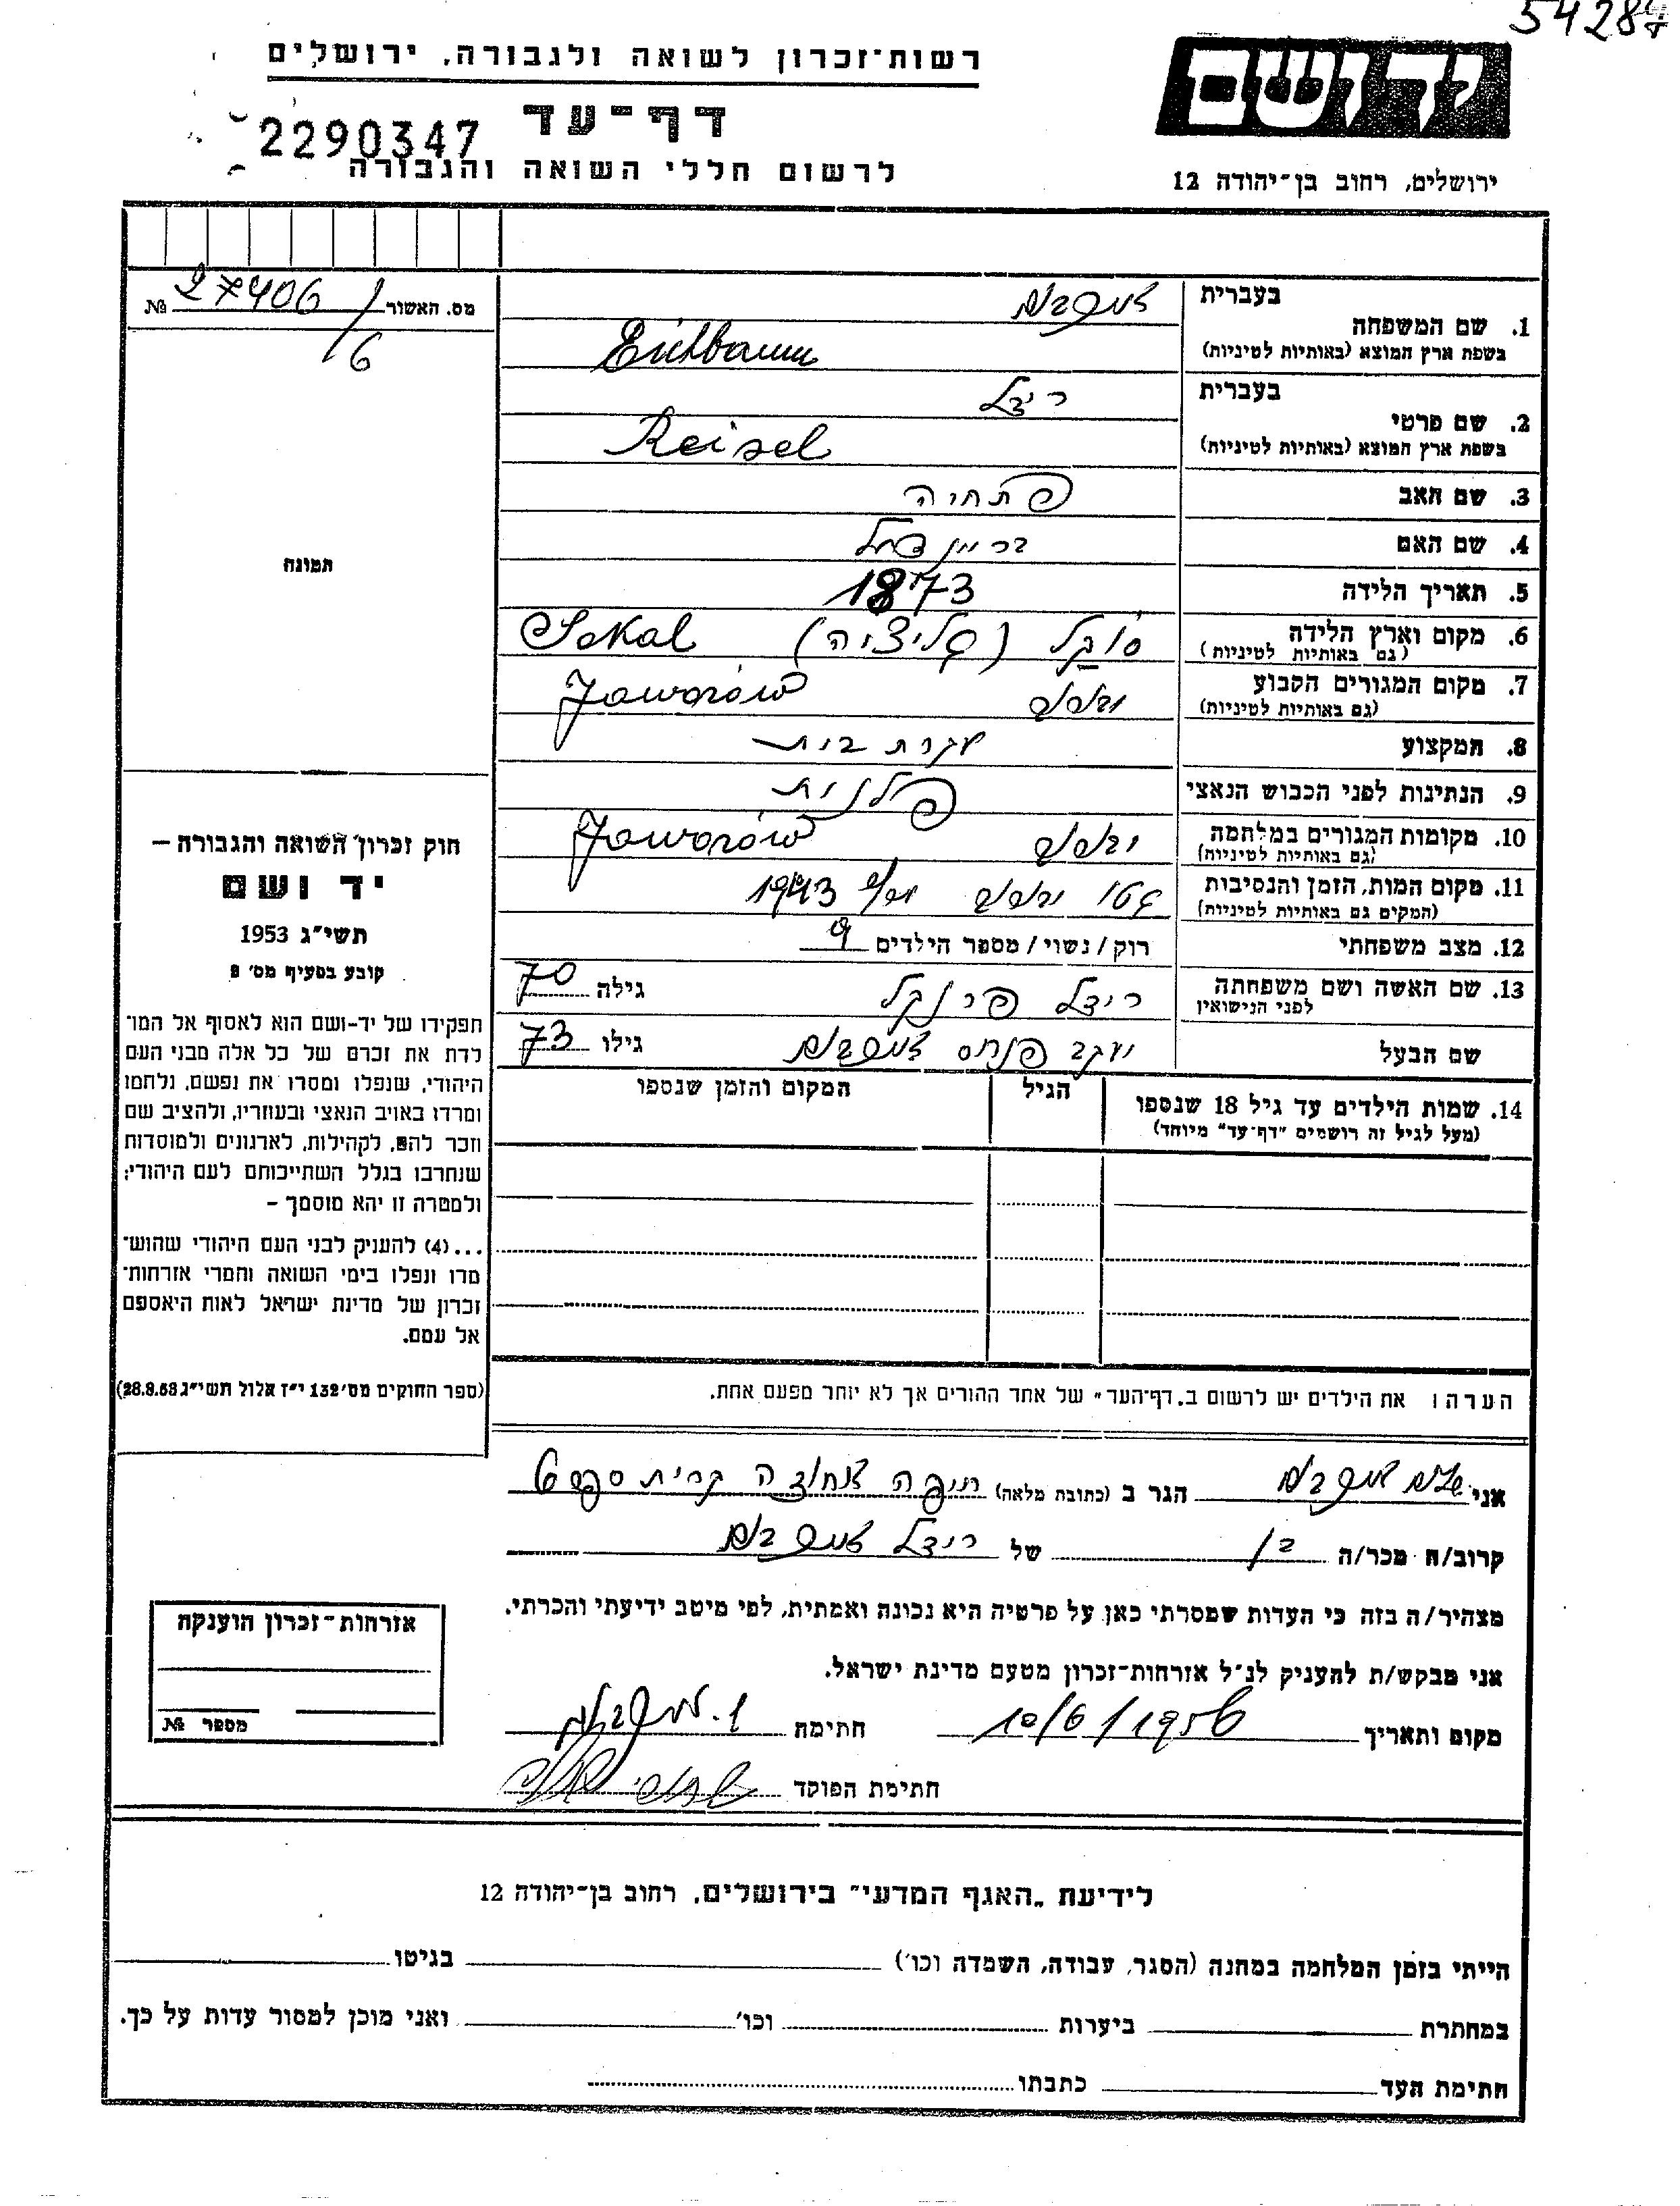 54284
רשות־זכרון לשואה ולגבורה, ירושלים
יד ושם
דף־עד
2290347
לרשום חללי השואה והגבורה
ירושלים, רחוב בן־יהודה 12
מס. האשור 27406/ №
6
1. שם המשפחה
בעברית אייכבוים
בשפת ארץ המוצא (באותיות לטיניות) Eichbaum
2. שם פרטי
בעברית רייזל
בשפת ארץ המוצא (באותיות לטיניות) Reisel
3. שם האב פתחיה
4. שם האם
5. תאריך הלידה 1873
6. מקום וארץ הלידה סוקל (גליציה) Sokal
(גם באותיות לטיניות)
7. מקום המגורים הקבוע יבורוב Jaworów
(גם באותיות לטיניות)
8. המקצוע עקרת בית
9. הנתינות לפני הכבוש הנאצי פולנית
10. מקומות המגורים במלחמה Jaworów
(גם באותיות לטיניות)
11. מקום המות, הזמן והנסיבות גטו 1943
(המקום גם באותיות לטיניות)
12. מצב משפחתי רוק/נשוי/מספר הילדים 9
13. שם האשה ושם משפחתה רייזל פרנקל גילה 70
לפני הנישואין
שם הבעל יעקב פנחס אייכבוים גילו 73
14. שמות הילדים עד גיל 18 שנספו
(מעל לגיל זה רושמים "דף־עד" מיוחד)
הגיל
המקום והזמן שנספו
תמונה
חוק זכרון השואה והגבורה –
יד ושם
תשי"ג 1953
קובע בסעיף מס׳ 2
תפקידו של יד-ושם הוא לאסוף אל המו־
לדת את זכרם של כל אלה מבני העם
היהודי, שנפלו ומסרו את נפשם, נלחמו
ומרדו באויב הנאצי ובעוזריו, ולהציב שם
וזכר להם, לקהילות, לארגונים ולמוסדות
שנחרבו בגלל השתייכותם לעם היהודי;
ולמטרה זו יהא מוסמך –
...(4) להעניק לבני העם היהודי שהוש־
מדו ונפלו בימי השואה והמרי אזרחות־
זכרון של מדינת ישראל לאות היאספם
אל עמם.
(ספר החוקים מס׳ 132 י"ז אלול תשי"ג 28.8.53)
הערה: את הילדים יש לרשום ב„דף־העד" של אחד ההורים אך לא יותר מפעם אחת.
אני שלום אייכבוים הגר ב (כתובת מלאה) חיפה אחוזה קרית ספר 6
קרוב/ה מכר/ה בן של רייזל אייכבוים
מצהיר/ה בזה כי העדות שמסרתי כאן על פרטיה היא נכונה ואמתית, לפי מיטב ידיעתי והכרתי.
אני מבקש/ת להעניק לנ"ל אזרחות־זכרון מטעם מדינת ישראל.
מקום ותאריך 10/6/1956 חתימה
חתימת הפוקד
אזרחות־זכרון הוענקה
מספר №
לידיעת „האגף המדעי" בירושלים, רחוב בן־יהודה 12
הייתי בזמן המלחמה במחנה (הסגר, עבודה, השמדה וכו׳) בגיטו
במחתרת ביערות וכו׳ ואני מוכן למסור עדות על כך.
חתימת העד כתבתו